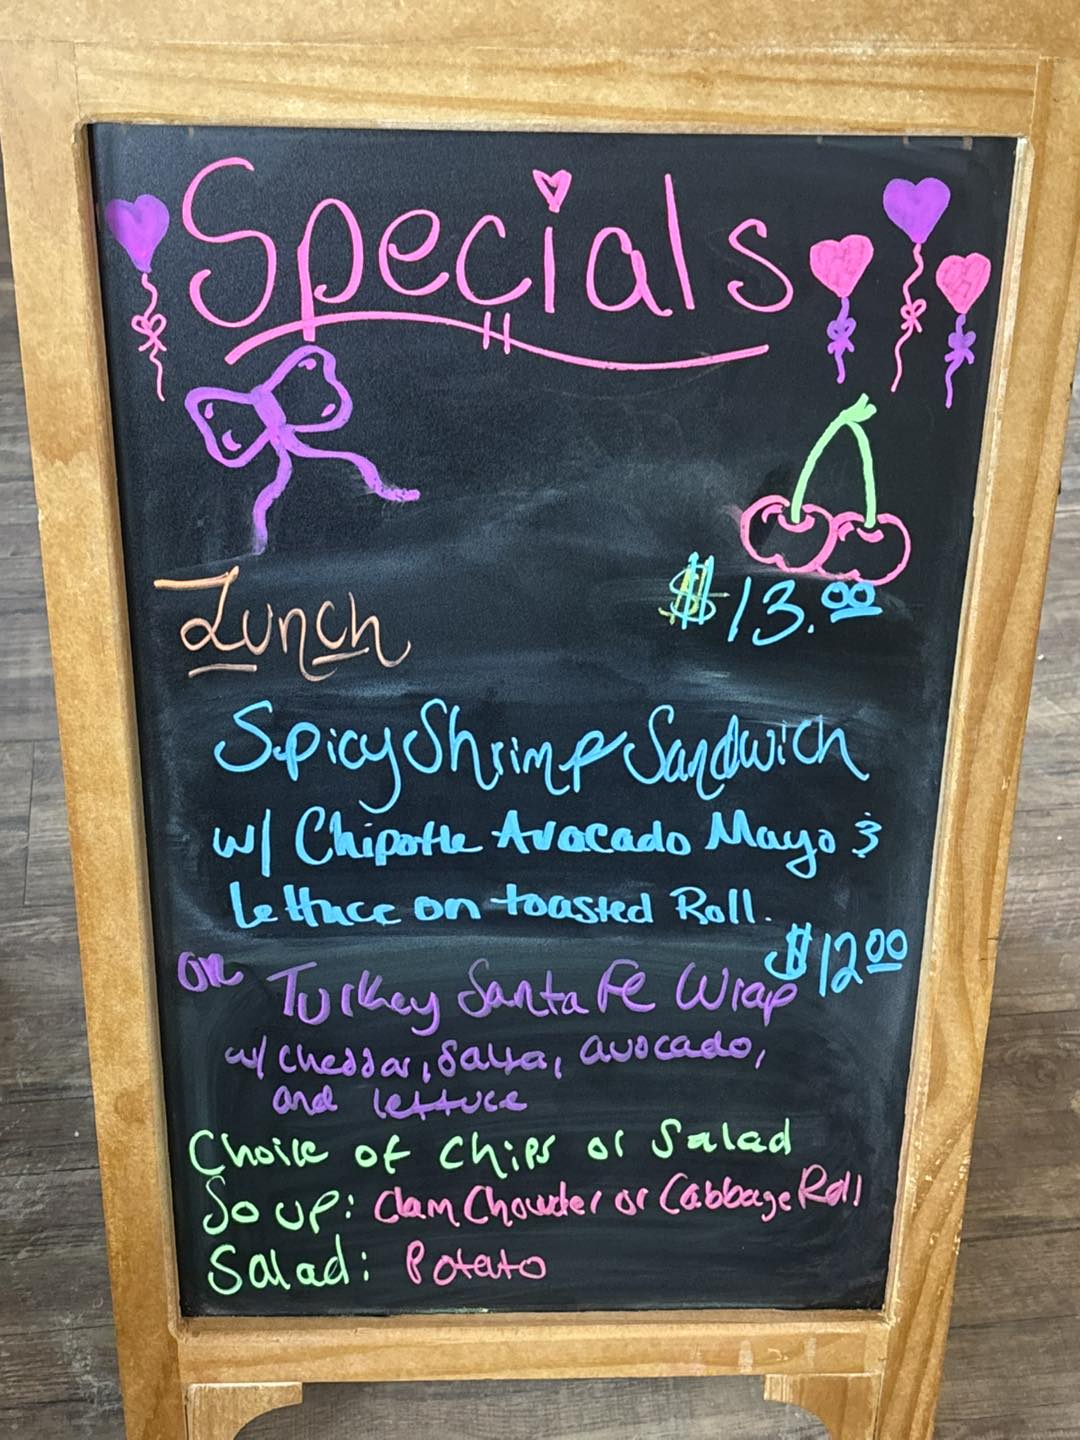 Specials
Lunch $13.00
Spicy Shrimp Sandwich
w/ Chipotle Avocado Mayo &
Lettuce on toasted Roll.
$12.00
OR Turkey Santa Fe Wrap
w/ cheddar, Salsa, avocado,
and lettuce
Choice of Chips or Salad
Soup: Clam Chowder or Cabbage Roll
Salad: Potato